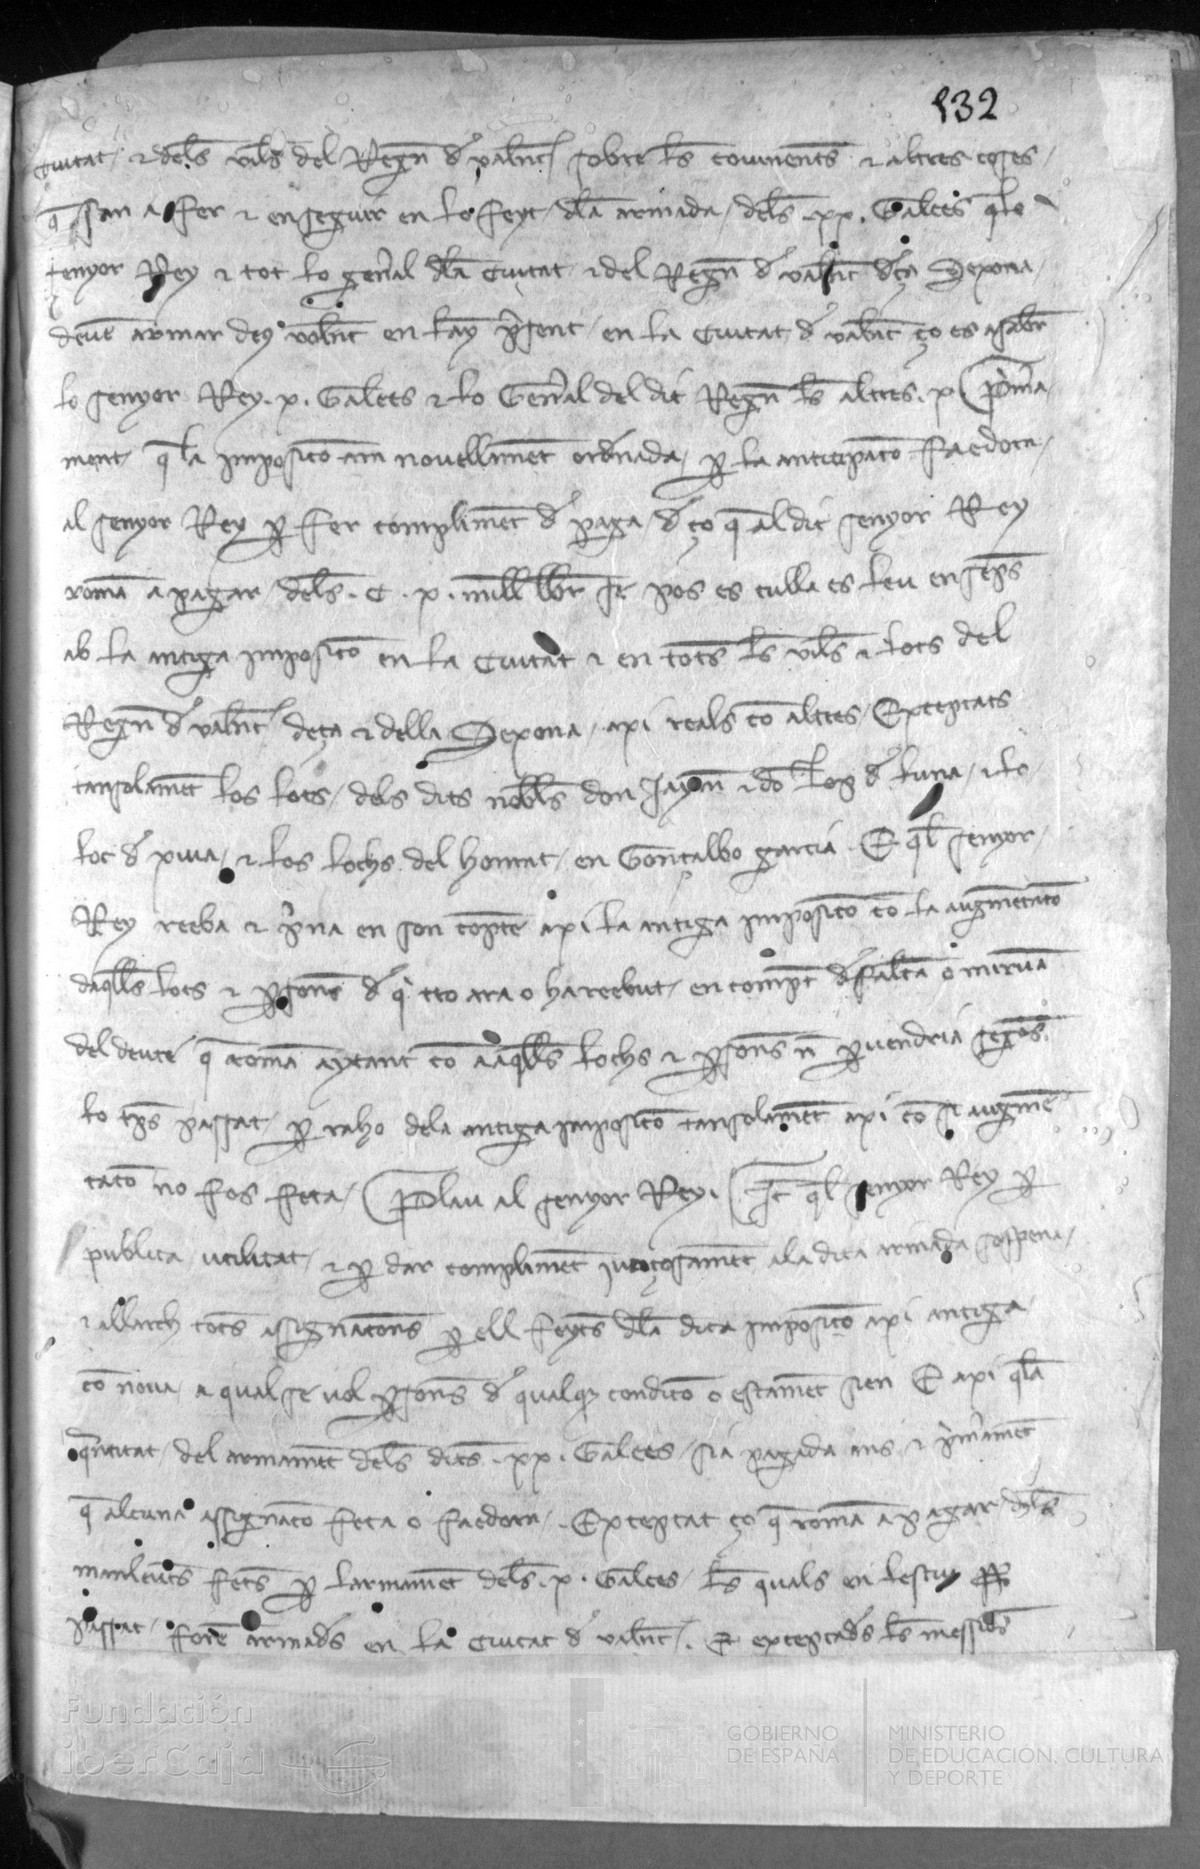 132
Ciutat / & dels viles del Regn de valent sobre los couinents & altres coses /
q san a fer & enseguir en lo feyt / dla armada / dels .xx. Galees qlo
senyor Rey & tot lo general dla Ciutat & del Regn de valent deça Sexona /
deuen armar en lay present / en la Ciutat de valent ço es asaber
lo senyor Rey .x. Galees & lo General del dit Regn les altres .x. Prima
ment q la imposicio ara nouellament ordenada / per la anticipacio faedora /
al senyor Rey per fer compliment de paga / de ço q al dit senyor Rey
roman a pagar / dels . C . x . mill llbr se pos es culla es leu ensemps
ab la antiga imposicio en la Ciutat & en tots los viles & lochs del
Regn de valent deça & della Sexona / axi reals co altres / Exceptats
tansolament los lochs / dels dits nobles don Jaym & do Lop de luna / & lo
loc de xiua / & los lochs del honrat / en Gonçalbo garcia . E ql senyor /
Rey reeba & prena en son compte axi la antiga imposicio co la augmentacio
daqlls lochs & persones de q tro ara o ha reebut / en compt de falta o minua
del deute q roman aytant co aaqlls lochs & persones n peruendria segons
lo temps passat / per raho dela antiga imposicio tansolament axi co si augmen
tacio no fos feta / Plau al senyor Rey . It ql senyor Rey per
publica utilitat / & per dar compliment iuaçosament ala dita armada sospena /
& allarch totes assignacions per ell feytes dla dita imposicio axi antiga
co noua / a qual se vol persones de qualq condicio o estament sien E axi qla
quantitat / del armament dels dits .xx. Galees / sia pagada ans & primament
q alcuna assignacio feta o faedora / . Exceptat ço q roman a pagar dels
manleuts fets per larmament dels .x. Galees / les quals en lestiu
passat / foren armades en la Ciutat de valent / . Et exceptades les messions
Fundación
iberCaja
GOBIERNO
DE ESPAÑA
MINISTERIO
DE EDUCACIÓN, CULTURA
Y DEPORTE